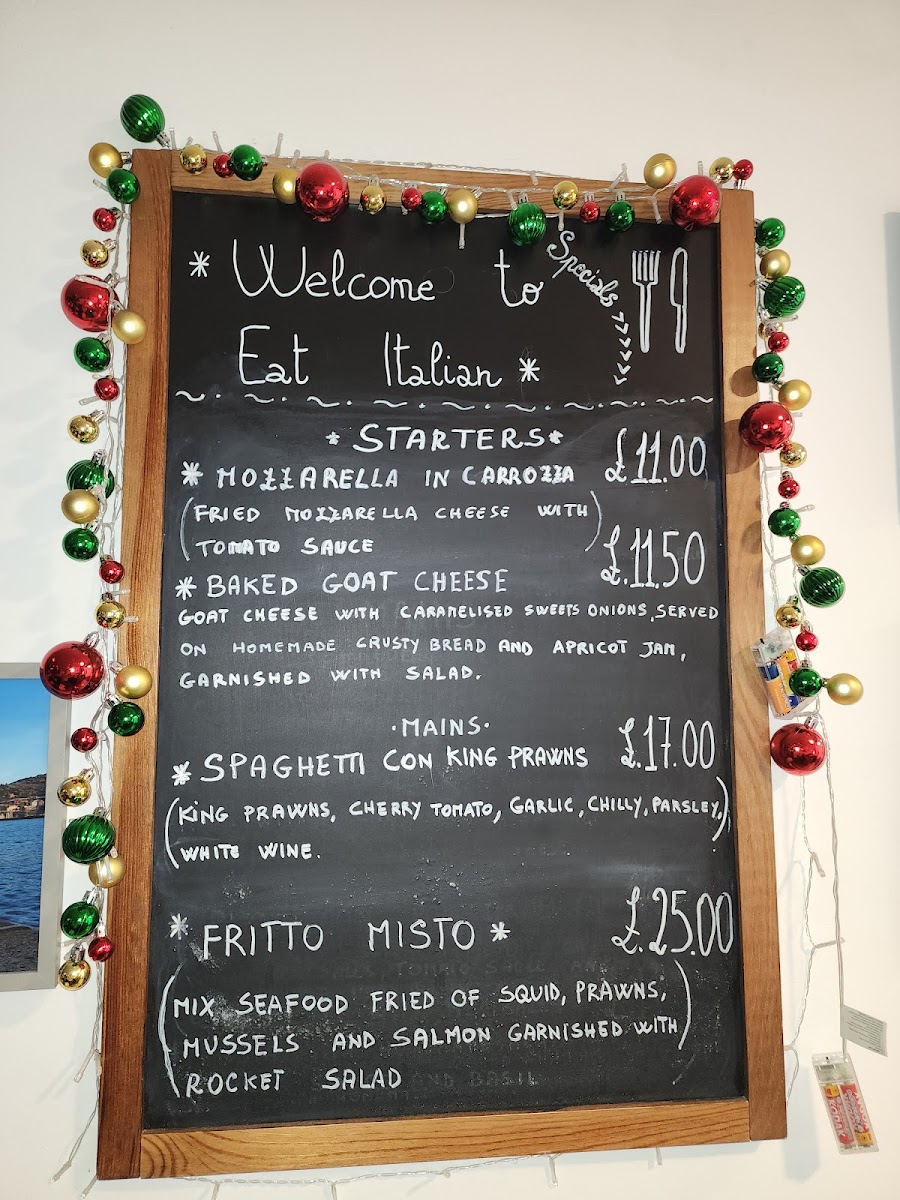 * Welcome to
Specials >>>>>
Eat Italian *
* STARTERS *
* MOZZARELLA IN CARROZZA £11.00
(FRIED MOZZARELLA CHEESE WITH
TOMATO SAUCE)
* BAKED GOAT CHEESE £.11.50
GOAT CHEESE WITH CARAMELISED SWEETS ONIONS, SERVED
ON HOMEMADE CRUSTY BREAD AND APRICOT JAM,
GARNISHED WITH SALAD.
·MAINS·
* SPAGHETTI CON KING PRAWNS £.17.00
(KING PRAWNS, CHERRY TOMATO, GARLIC, CHILLY, PARSLEY,)
WHITE WINE.
* FRITTO MISTO * £.25.00
(MIX SEAFOOD FRIED OF SQUID, PRAWNS,
MUSSELS AND SALMON GARNISHED WITH)
ROCKET SALAD
AND BASIL